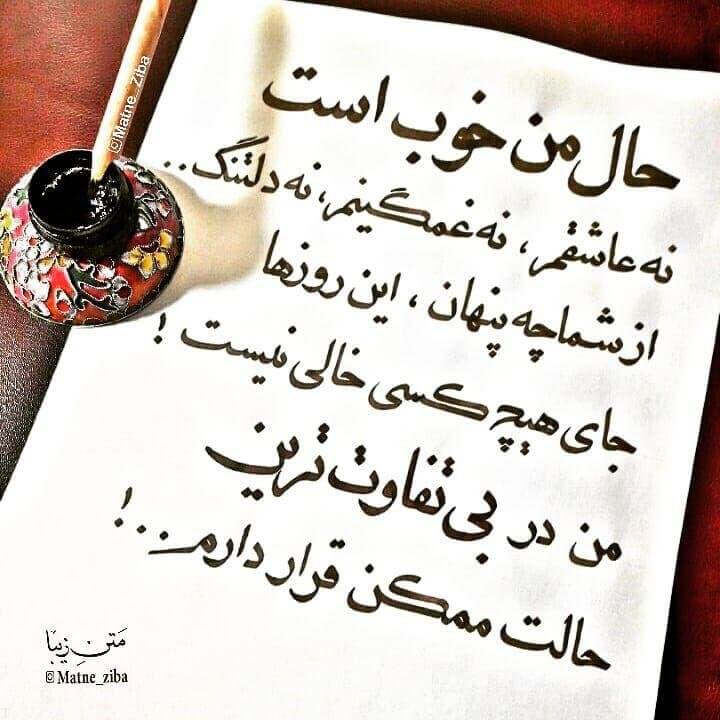 حال من خوب است
نه عاشقم، نه غمگینم، نه دلتنگ..
از شما چه پنهان، این روزها
جای هیچ کسی خالی نیست!
من در بی تفاوت ترین
حالت ممکن قرار دارم...!
متن زیبا
@Matne_ziba
@Matne_Ziba